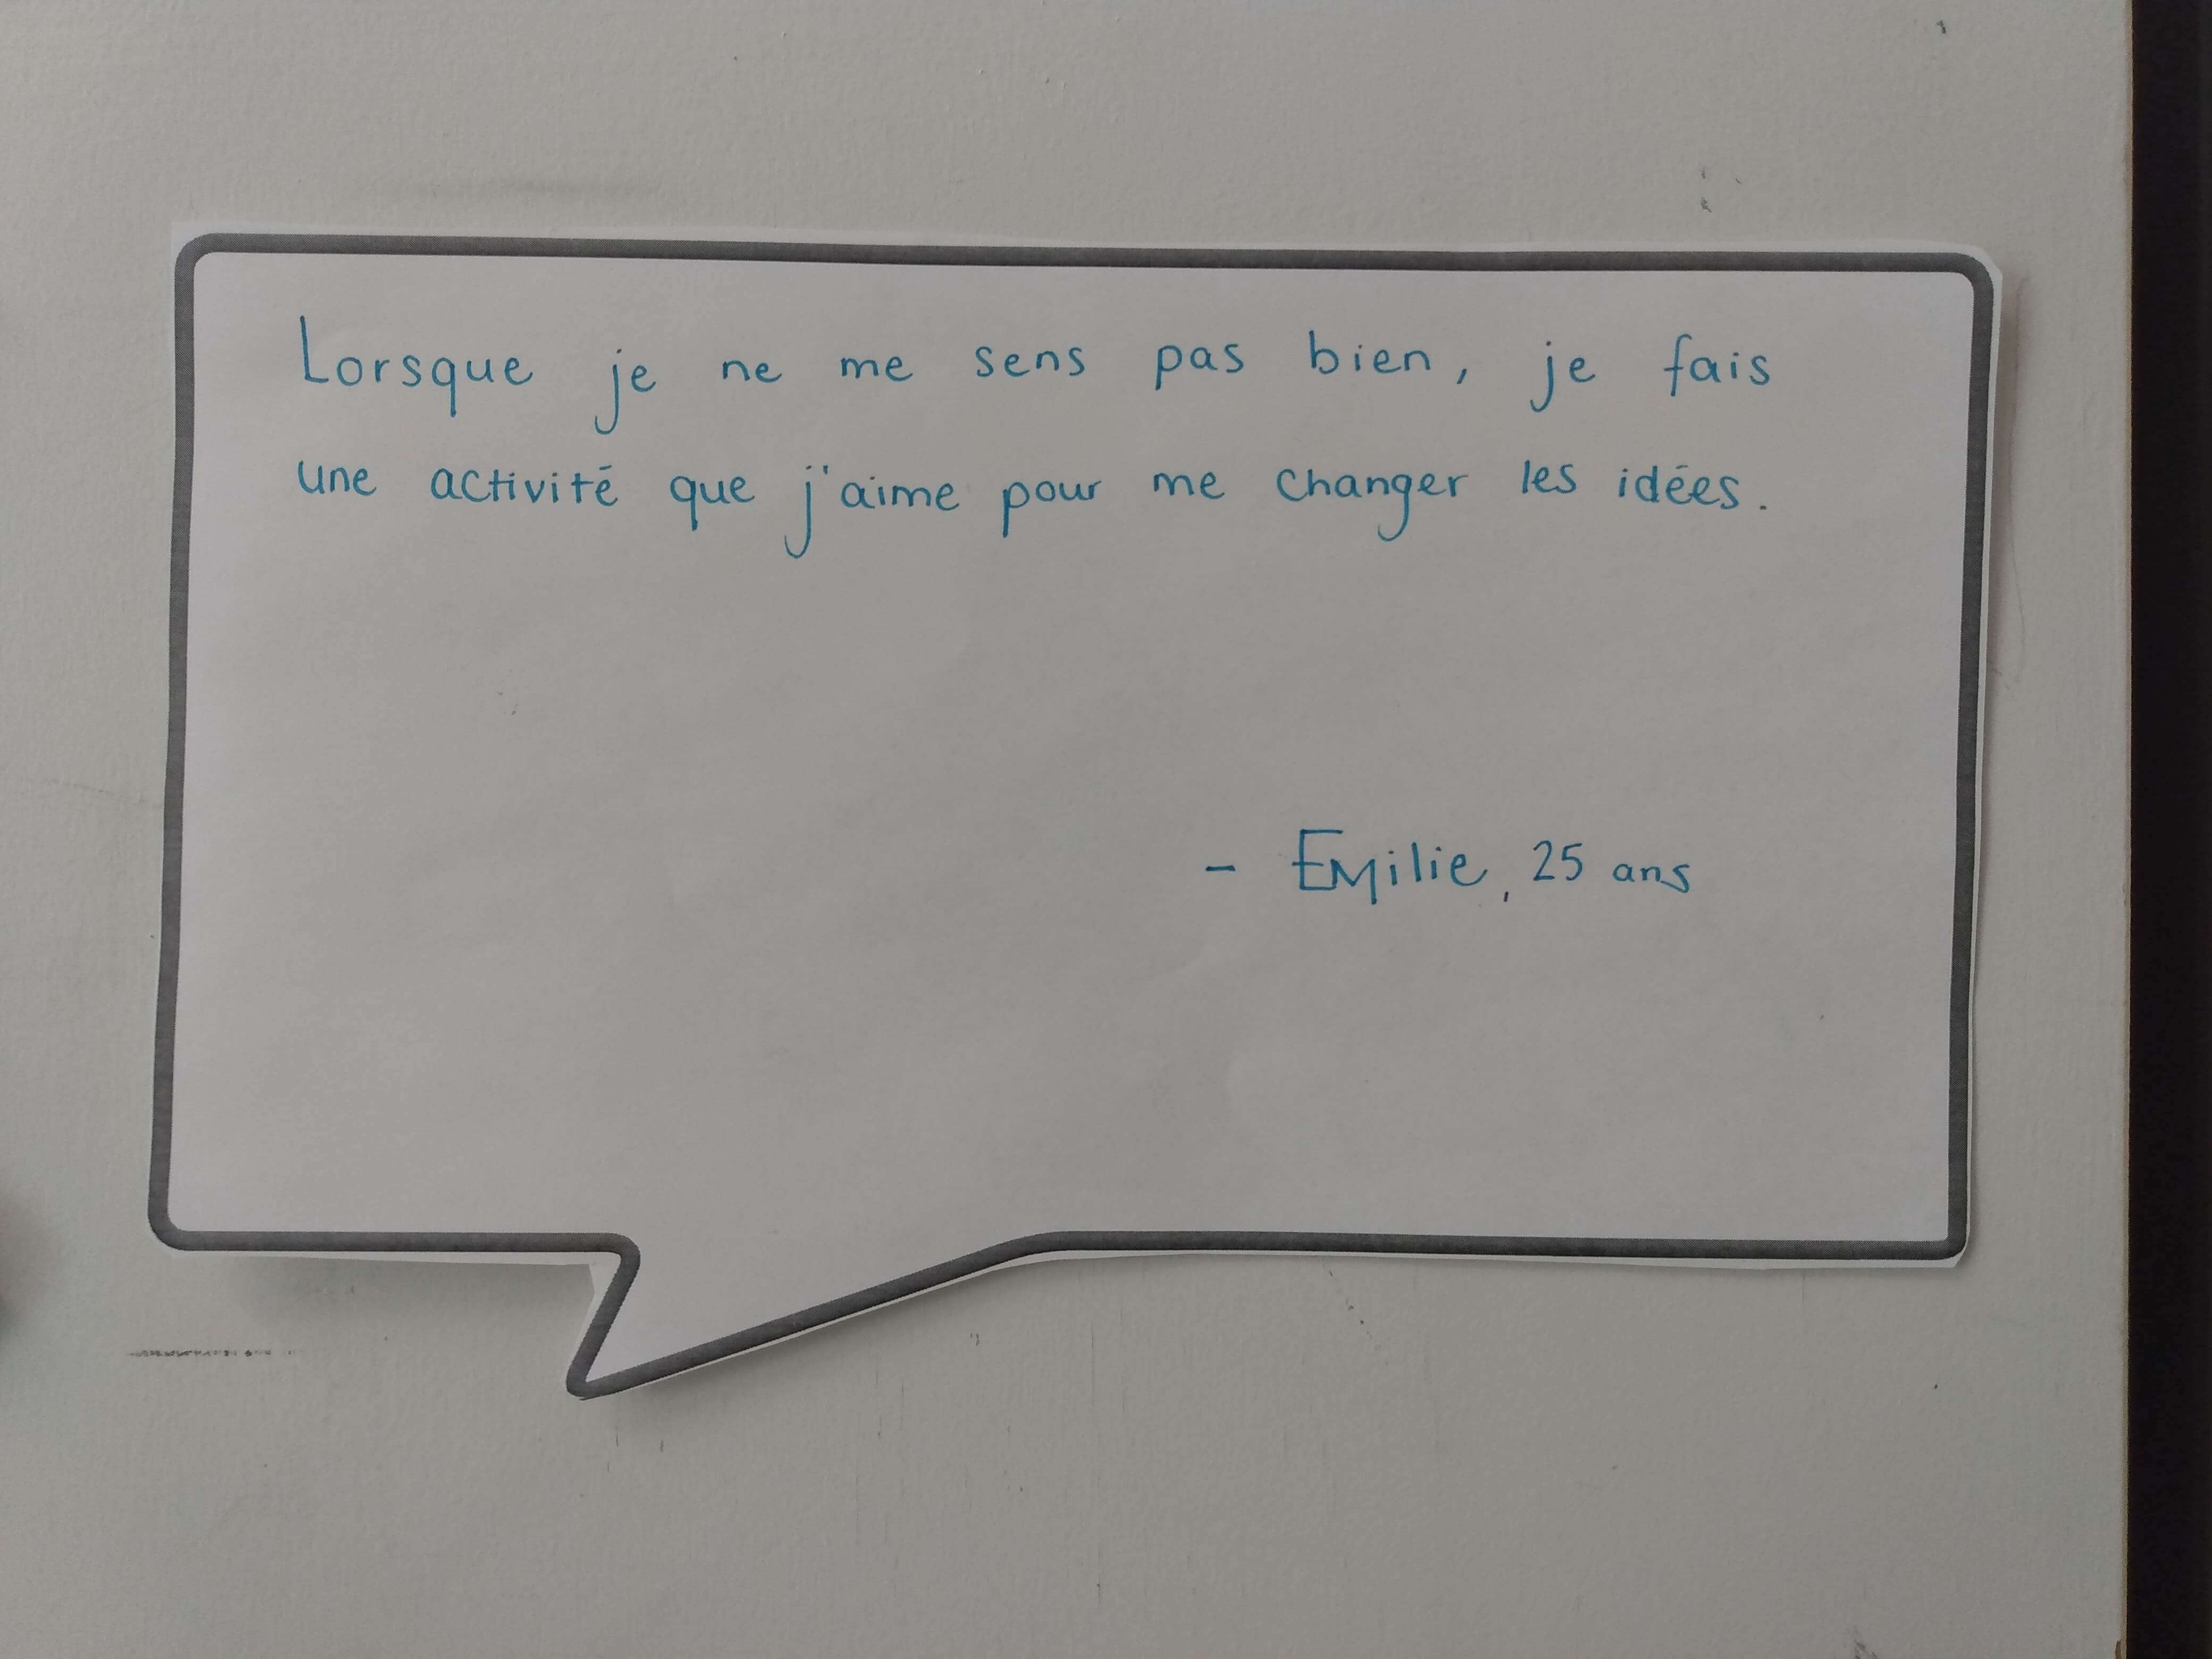 Lorsque je ne me sens pas bien, je fais
une activité que j'aime pour me changer les idées.
- Emilie, 25 ans